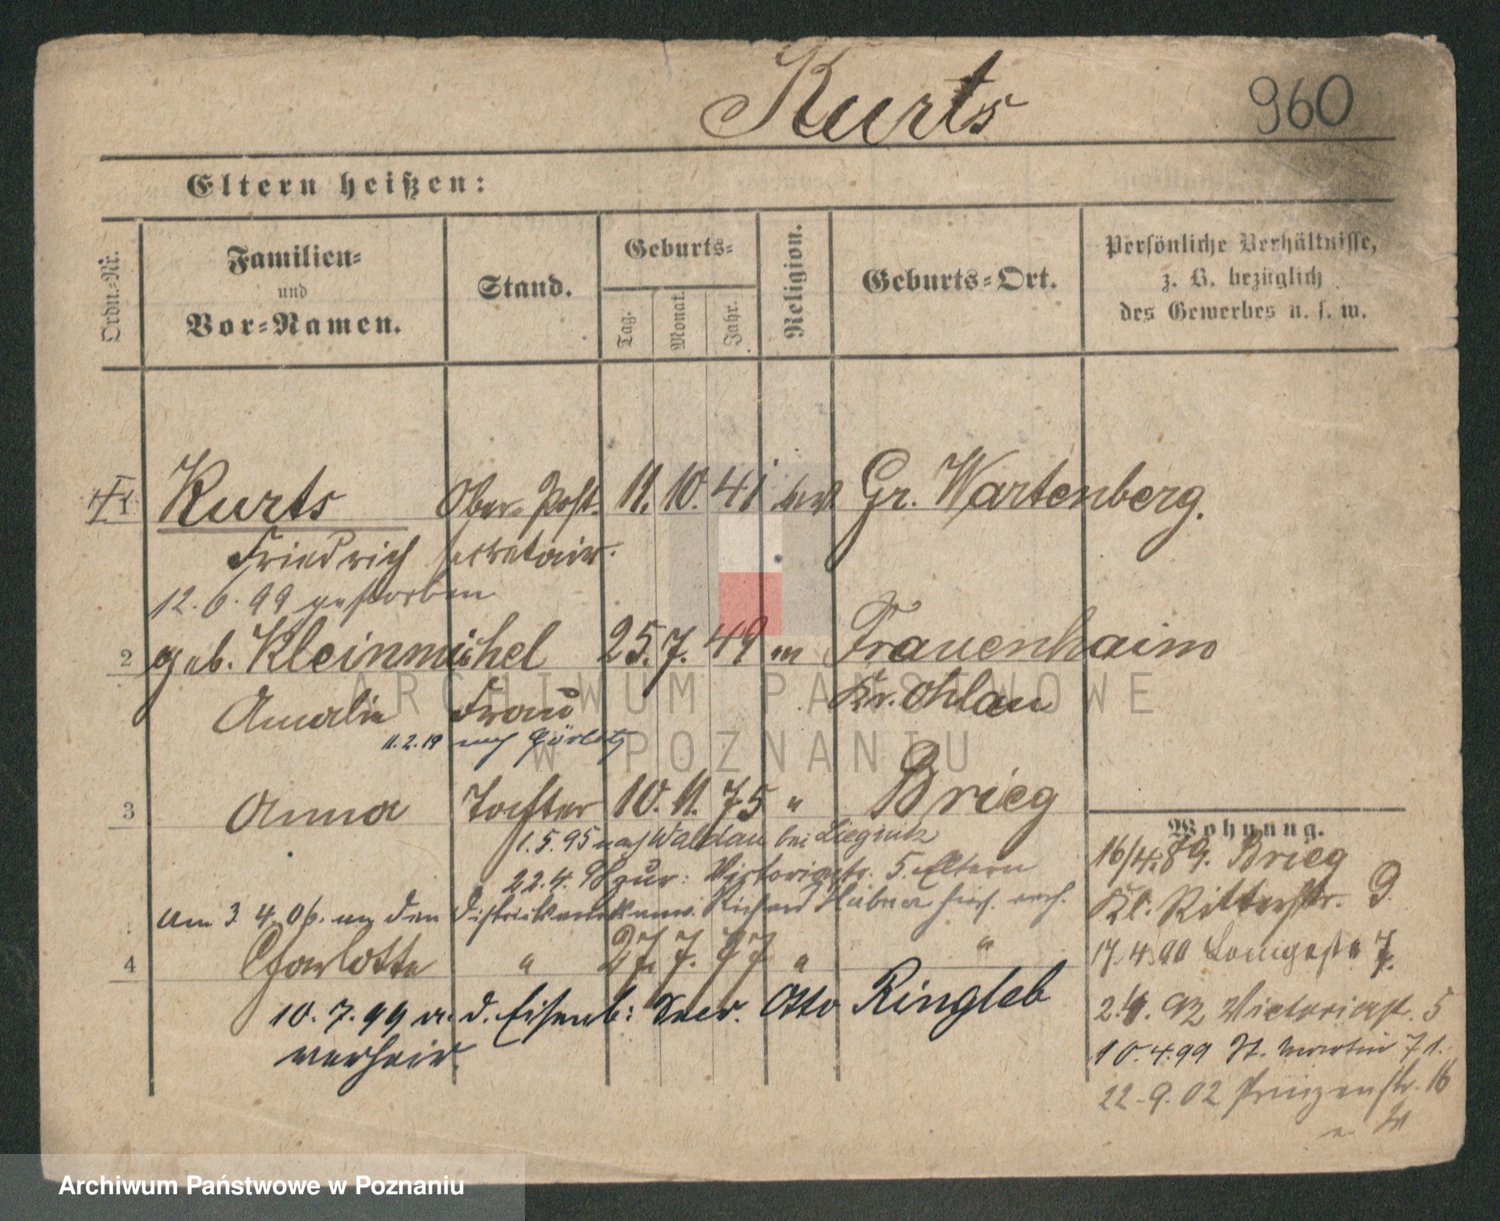 Kurts
960
Eltern heißen:
Ordn.-Nr.
Familien-
und
Vor-Namen.
Stand.
Geburts-
Tag.
Monat.
Jahr.
Religion.
Geburts-Ort.
Persönliche Verhältnisse,
z. B. bezüglich
des Gewerbes u. s. w.
1 Kurts Ober-Post- 11. 10. 41 Gr. Wartenberg.
Friedrich sekretair.
12. 6. 99 gestorben
2 geb. Kleinmichel 25. 7. 49 Frauenhaim
Amalie Frau Kr. Ohlau
11.2.19 nach Görlitz
3 Anna Tochter 10. 11. 75 " Brieg
1.5.95 nach Waldau bei Liegnitz
22.4. zur: Victoriastr. 5. Eltern
Am 3 4. 06. an den Richard
4 Charlotte " 27. 7. 77 " "
10. 7. 99 a. d. Eisenb: Otto Ringleb
verheir.
Wohnung.
16/4.89. Brieg
Kl. Ritterstr. 9.
17.4.90 7.
2.4.92 Victoriast. 5
10.4.99 St. Martin 71.
22.9.02 Prinzenstr. 16
ARCHIWUM PAŃSTWOWE
W POZNANIU
Archiwum Państwowe w Poznaniu